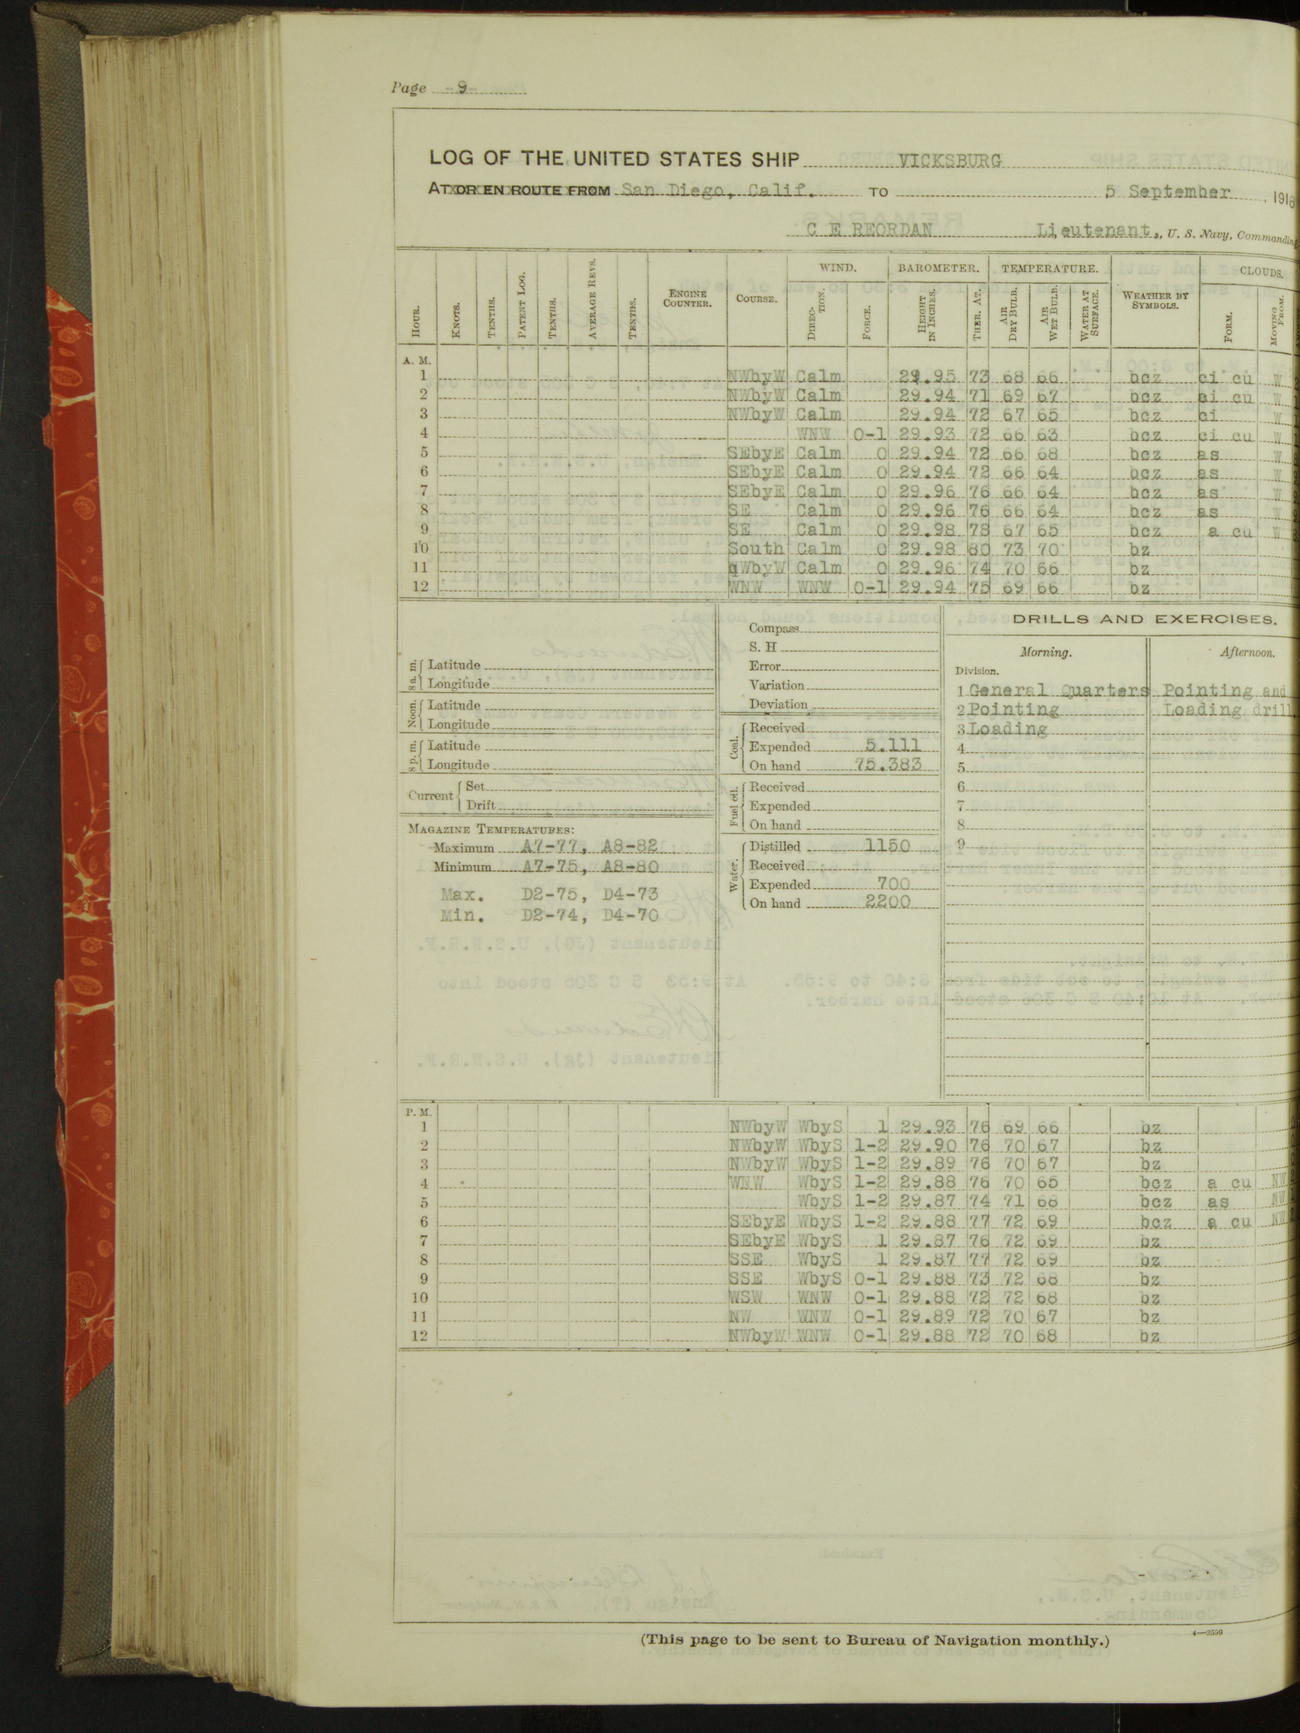 Page -9-
LOG OF THE UNITED STATES SHIP VICKSBURG
AT OR EN ROUTE FROM San Diego, Calif. TO 5 September, 1918
C E REORDAN Lieutenant, U. S. Navy, Commanding
HOUR. KNOTS. TENTHS. PATENT LOG. TENTHS. AVERAGE REVS. TENTHS. ENGINE COUNTER. COURSE. WIND. DIRECTION. FORCE. BAROMETER. HEIGHT IN INCHES. THER. AT. TEMPERATURE. AIR DRY BULB. AIR WET BULB. WATER AT SURFACE. WEATHER BY SYMBOLS. CLOUDS. FORM. MOVING FROM.
A. M.
1 NWbyW Calm 29.95 73 68 66 bcz ci cu W
2 NWbyW Calm 29.94 71 69 67 bcz ci cu W
3 NWbyW Calm 29.94 72 67 65 bcz ci W
4 WNW 0-1 29.93 72 66 63 bcz ci cu W
5 SEbyE Calm 0 29.94 72 66 68 bcz as W
6 SEbyE Calm 0 29.94 72 66 64 bcz as W
7 SEbyE Calm 0 29.96 76 66 64 bcz as W
8 SE Calm 0 29.96 76 66 64 bcz as W
9 SE Calm 0 29.98 78 67 65 bcz a cu W
10 South Calm 0 29.98 80 73 70 bz
11 qWbyW Calm 0 29.96 74 70 66 bz
12 WNW WNW 0-1 29.94 75 69 66 bz
8 a. m. Latitude
Longitude
Noon. Latitude
Longitude
8 p. m. Latitude
Longitude
Current Set
Drift
MAGAZINE TEMPERATURES:
Maximum A7-77, A8-82
Minimum A7-75, A8-80
Max. D2-75, D4-73
Min. D2-74, D4-70
Compass
S. H
Error
Variation
Deviation
Coal. Received
Expended 5.111
On hand 75.383
Fuel oil. Received
Expended
On hand
Water. Distilled 1150
Received
Expended 700
On hand 2200
DRILLS AND EXERCISES.
Morning. Afternoon.
Division.
1 General Quarters Pointing and
2 Pointing Loading drill
3 Loading
4
5
6
7
8
9
P. M.
1 NWbyW WbyS 1 29.93 76 69 66 bz
2 NWbyW WbyS 1-2 29.90 76 70 67 bz
3 NWbyW WbyS 1-2 29.89 76 70 67 bz
4 WNW WbyS 1-2 29.88 76 70 65 bcz a cu NW
5 WbyS 1-2 29.87 74 71 68 bcz as NW
6 SEbyE WbyS 1-2 29.88 77 72 69 bcz a cu NW
7 SEbyE WbyS 1 29.87 76 72 69 bz
8 SSE WbyS 1 29.87 77 72 69 bz
9 SSE WbyS 0-1 29.88 73 72 68 bz
10 WSW WNW 0-1 29.88 72 72 68 bz
11 NW WNW 0-1 29.89 72 70 67 bz
12 NWbyW WNW 0-1 29.88 72 70 68 bz
(This page to be sent to Bureau of Navigation monthly.)
4—2559